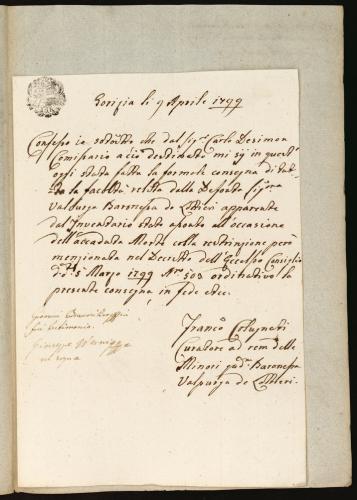 Gorizia li 9 Aprile 1799
Confesso io sottotto che dal Sigr Carlo Desimon
Comissario a ciò destinato mi sij in quest'
oggi stata fatta la formale consegna di tut-
ta la facoltà relita dalla Defonta Sigra
Valburga Baronessa de apparente
dal Inventario stato assonto all'occasione
dell'accaduta Morte colla restrinzione però
menzionata nel Decretto dell'Eccelso Consiglio
d.d. 5 Marzo 1799 Nro 503 orditativo la
presente consegna in fede etc.
Franco
Curatore ad rem delle
Minori Baronessa
Valpurga de
Giovanni
fui testimonio
Giuseppe